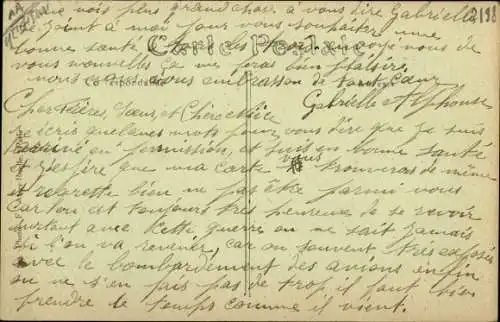 vois plus grand chose à vous dire Gabrielle
se joint à moi pour vous souhaiter une
bonne santé
Carte Postale
vous nouvelles ça me feras bien plaisir
nous vous embrasson de tout cœur
Correspondance
Gabrielle Alphonse
Cher Frères, Sœur, et Chère
écris quelques mots pour vous dire que je suis
en permission, et suis en bonne santé
et j'espère que ma carte vous trouveras de même
regrette bien ne pas être parmi vous
car on est toujours très heureux de se revoir
surtant avec cette guerre on ne sait jamais
si l'on va revenir, car on souvent très exposés
avec le bombardement des avions enfin
on ne s'en fais pas de trop il faut bien
prendre le temps comme il vient.